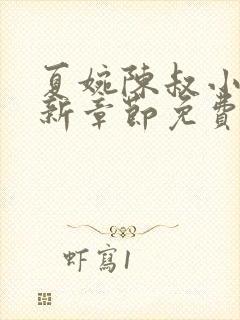 夏婉陳叔小
新章節免費
虾寫1